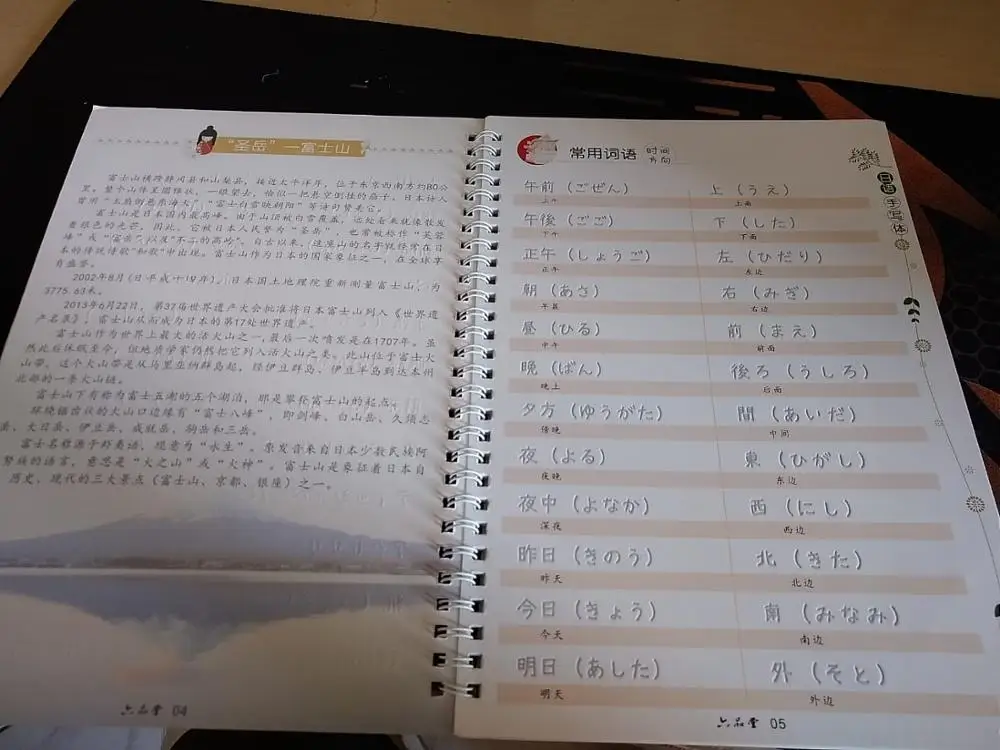 "圣岳"—富士山
富士山横跨静冈县和山梨县，接近太平洋岸，位于东京西南方约80公
里。整个山体呈圆锥状，一眼望去，恰似一把悬空倒挂的扇子，日本诗人
曾用"玉扇倒悬东海天"、"富士白雪映朝阳"等诗句赞美它。
富士山是日本国内最高峰。由于山顶被白雪覆盖，远处看来就像散发
着银色的光芒，因此，它被日本人民誉为"圣岳"，也常被称作"芙蓉
峰"或"富岳"以及"不二的高岭"。自古以来，这座山的名字就经常在日
本的传统诗歌"和歌"中出现。富士山作为日本的国家象征之一，在全球享
有盛誉。
2002年8月(日平成十四年)，日本国土地理院重新测量富士山，为
3775.63米。
2013年6月22日，第37届世界遗产大会批准将日本富士山列入《世界遗
产名录》，富士山从而成为日本的第17处世界遗产。
富士山作为世界上最大的活火山之一，最后一次喷发是在1707年。虽
然此后休眠至今，但地质学家仍然把它列入活火山之类。此山位于富士火
山带，这个火山带是从马里亚纳群岛起，经伊豆群岛、伊豆半岛到达本州
北部的一条火山链。
富士山下有称为富士五湖的五个湖泊，那是攀登富士山的起点。
环绕锯齿状的火山口边缘有"富士八峰"，即剑峰、白山岳、久须志
岳、大日岳、伊豆岳、成就岳、驹岳和三岳。
富士名称源于虾夷语，现意为"永生"。原发音来自日本少数民族阿
努族的语言，意思是"火之山"或"火神"。富士山是象征着日本自
历史、现代的三大景点（富士山、京都、银座）之一。
六品堂 04
常用词语 时间
方向
日语手写体
午前（ごぜん） 上（うえ）
上午 上面
午後（ごご） 下（した）
下午 下面
正午（しょうご） 左（ひだり）
正午 左边
朝（あさ） 右（みぎ）
早晨 右边
昼（ひる） 前（まえ）
中午 前面
晩（ばん） 後ろ（うしろ）
晚上 后面
夕方（ゆうがた） 間（あいだ）
傍晚 中间
夜（よる） 東（ひがし）
夜晚 东边
夜中（よなか） 西（にし）
深夜 西边
昨日（きのう） 北（きた）
昨天 北边
今日（きょう） 南（みなみ）
今天 南边
明日（あした） 外（そと）
明天 外边
六品堂 05